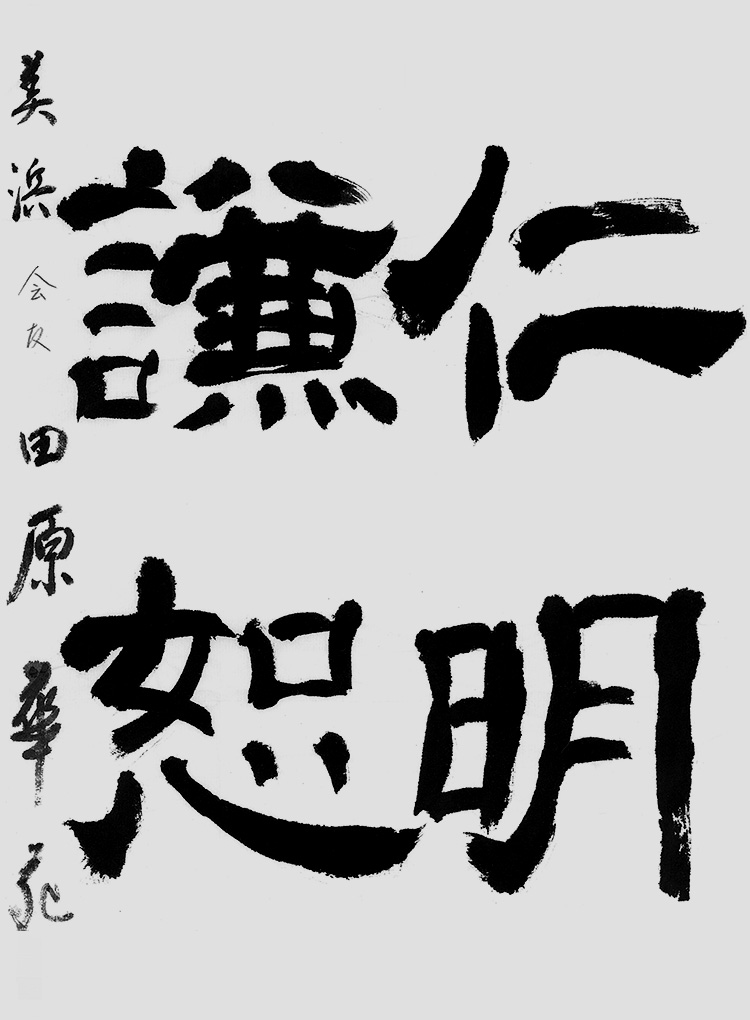 仁明
謙恕
美浜 会友 田原華苑